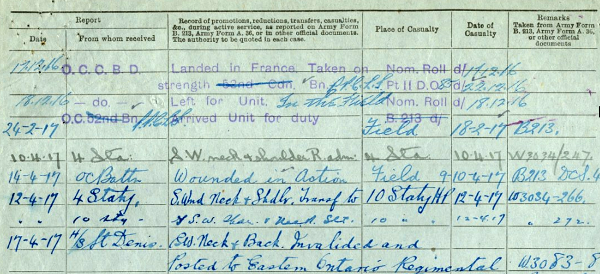 Report
Record of promotions, reductions, transfers, casualties, &c., during active service, as reported on Army Form B. 213, Army Form A. 36, or in other official documents. The authority to be quoted in each case.
Place of Casualty
Date of Casualty
Remarks
Taken from Army Form B. 213, Army Form A. 36, or other official documents
Date
From whom received
O.C.C.B.D. Landed in France, Taken on Nom. Roll d/ 17.12.16
strength 52nd Cdn. Bn. Pt II D.O.
18.12.16 - do. - Left for Unit, Nom. Roll d/ 18.12.16
O.C. 52nd Bn. Arrived Unit for duty B.213 d/
24-2-17 Field 18-2-17 B213.
10.4.17 4 Sta. S.W. neck & shoulder R. adm. 4 Sta. 10-4-17 W3034/247
14-4-17 OC Battn Wounded in Action Field 9-10-4-17 B213
12-4-17 4 Staty. S. Wnd Neck & Shdlr. Transf to 10 Staty Hp 12-4-17 W3034-266.
" " 10 Sty. S.W. Neck 10 " 12-4-17 " 272.
17-4-17 St Denis. S.W. Neck & Back. Invalided and
Posted to Eastern Ontario Regimental W3083-8